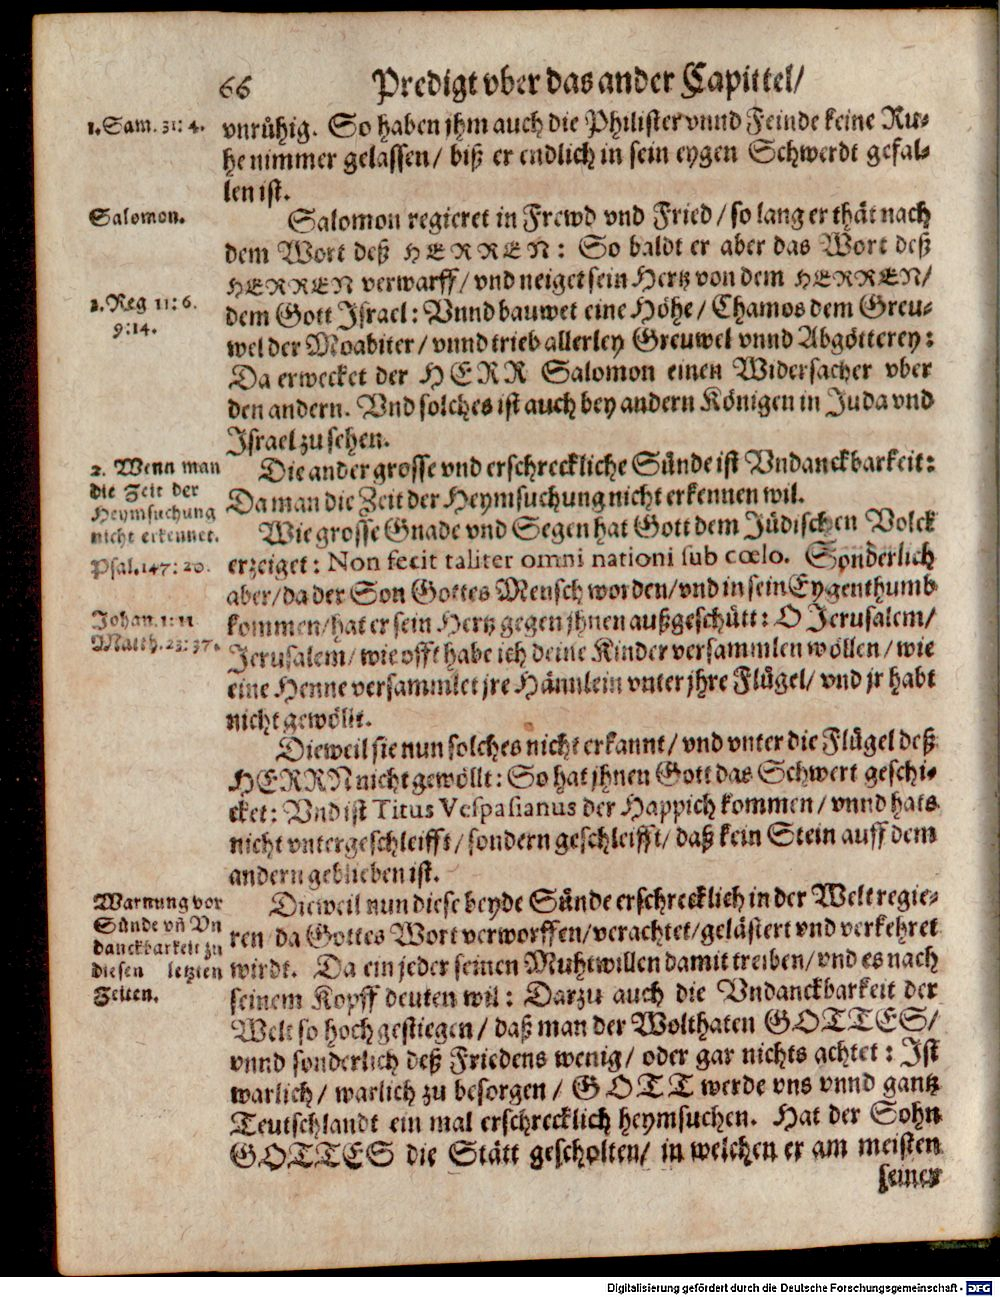 66 Predigt vber das ander Capittel/
1. Sam. 31: 4.
vnrühig. So haben jhm auch die Philister vnnd Feinde keine Ru-
he nimmer gelassen/ biß er endlich in sein eygen Schwerdt gefal-
len ist.
Salomon.
Salomon regieret in Frewd vnd Fried/ so lang er thät nach
dem Wort deß HERREN: So baldt er aber das Wort deß
HERREN verwarff/ vnd neiget sein Hertz von dem HERREN/
1. Reg 11: 6.
9: 14.
dem Gott Israel: Vnnd bauwet eine Höhe/ Chamos dem Greu-
wel der Moabiter/ vnnd trieb allerley Greuwel vnnd Abgötterey:
Da erwecket der HERR Salomon einen Widersacher vber
den andern. Vnd solches ist auch bey andern Königen in Juda vnd
Israel zu sehen.
2. Wenn man
die Zeit der
Heymsuchung
nicht erkennet.
Die ander grosse vnd erschreckliche Sünde ist Vndanckbarkeit:
Da man die Zeit der Heymsuchung nicht erkennen wil.
Wie grosse Gnade vnd Segen hat Gott dem Jüdischen Volck
Psal. 147: 20.
erzeiget: Non fecit taliter omni nationi sub cœlo. Sonderlich
aber/ da der Son Gottes Mensch worden/ vnd in sein Eygenthumb
Johan. 1: 11
Matth. 23: 37.
kommen/ hat er sein Hertz gegen jhnen außgeschütt: O Jerusalem/
Jerusalem/ wie offt habe ich deine Kinder versammlen wöllen/ wie
eine Henne versammlet jre Hännlein vnter jhre Flügel/ vnd jr habt
nicht gewöllt.
Dieweil sie nun solches nicht erkannt/ vnd vnter die Flügel deß
HERRN nicht gewöllt: So hat jhnen Gott das Schwert geschi-
cket: Vnd ist Titus Vespasianus der Happich kommen/ vnnd hats
nicht vntergeschleifft/ sondern geschleifft/ daß kein Stein auff dem
andern geblieben ist.
Warnung vor
Sünde vñ Vn
danckbarkeit zu
diesen letzten
Zeiten.
Dieweil nun diese beyde Sünde erschrecklich in der Welt regie-
ren da Gottes Wort verworffen/ verachtet/ gelästert vnd verkehret
wirdt. Da ein jeder seinen Muhtwillen damit treiben/ vnd es nach
seinem Kopff deuten wil: Darzu auch die Vndanckbarkeit der
Welt so hoch gestiegen/ daß man der Wolthaten GOTTES/
vnnd sonderlich deß Friedens wenig/ oder gar nichts achtet: Ist
warlich/ warlich zu besorgen/ GOTT werde vns vnnd gantz
Teutschlandt ein mal erschrecklich heymsuchen. Hat der Sohn
GOTTES die Stätt gescholten/ in welchen er am meisten
seiner
Digitalisierung gefördert durch die Deutsche Forschungsgemeinschaft - DFG